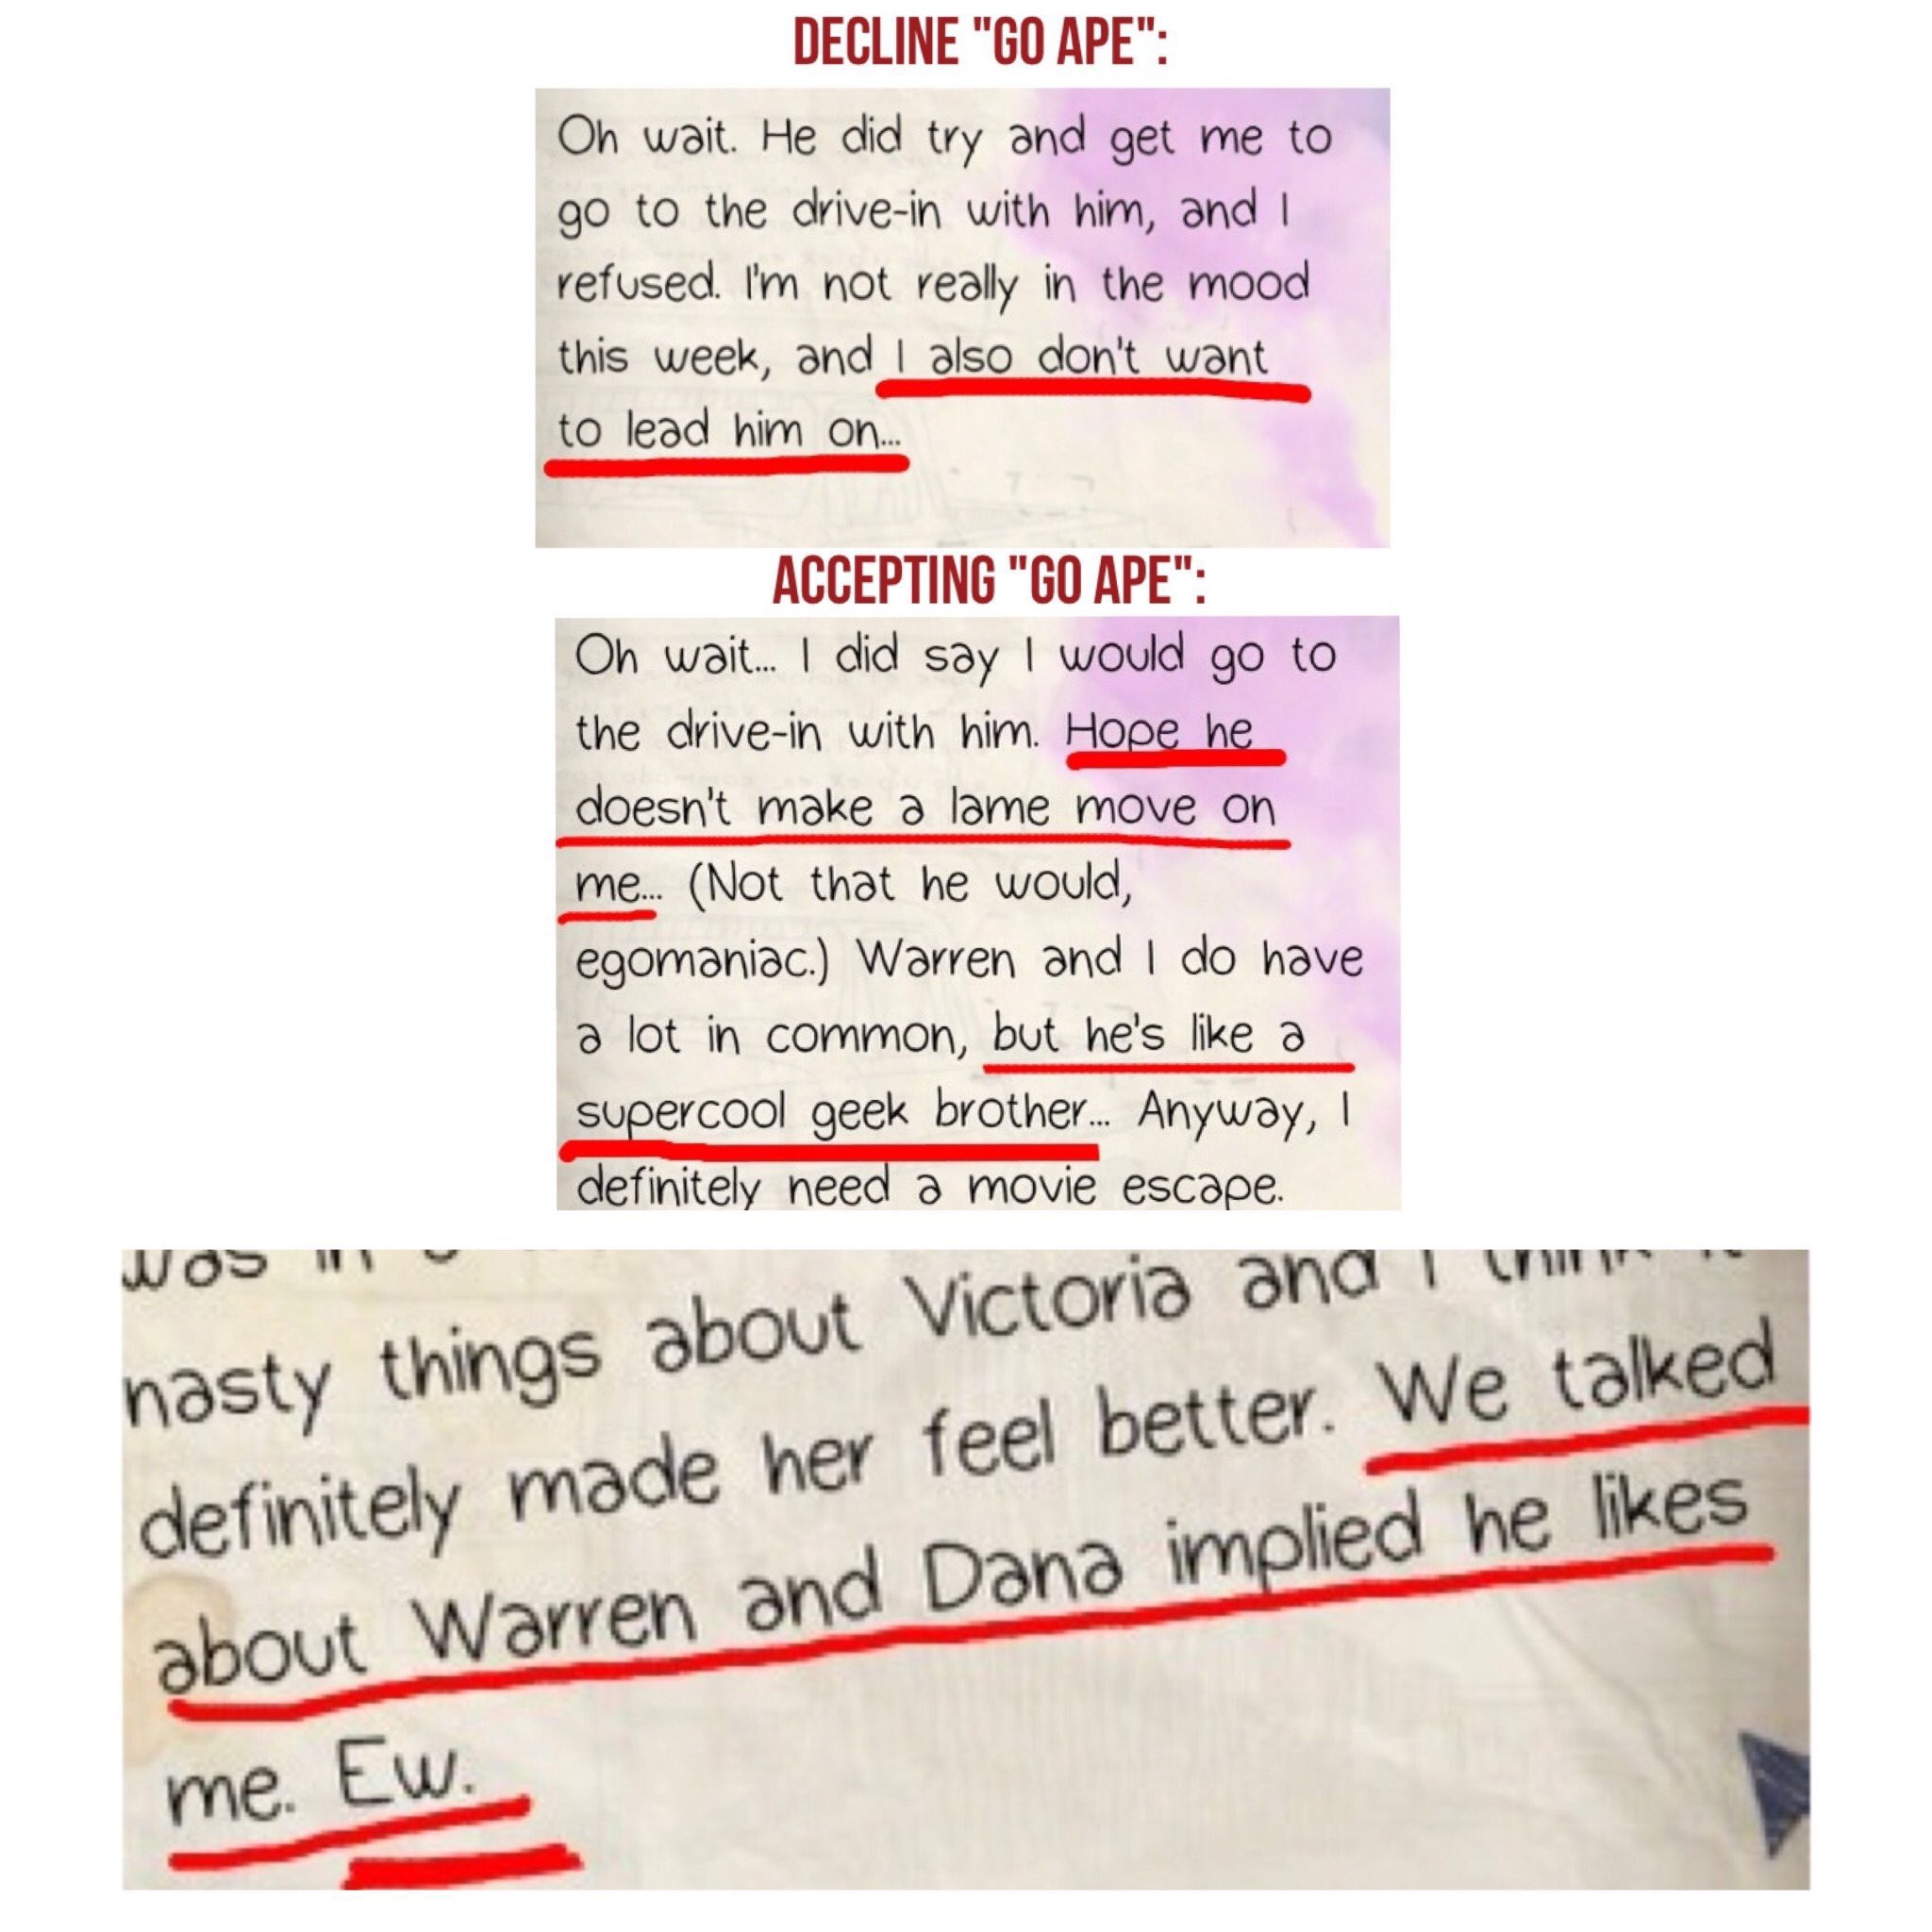 DECLINE "GO APE":
Oh wait. He did try and get me to
go to the drive-in with him, and I
refused. I'm not really in the mood
this week, and I also don't want
to lead him on...
ACCEPTING "GO APE":
Oh wait... I did say I would go to
the drive-in with him. Hope he
doesn't make a lame move on
me... (Not that he would,
egomaniac.) Warren and I do have
a lot in common, but he's like a
supercool geek brother... Anyway, I
definitely need a movie escape.
was in
nasty things about Victoria and I think
definitely made her feel better. We talked
about Warren and Dana implied he likes
me. Ew.